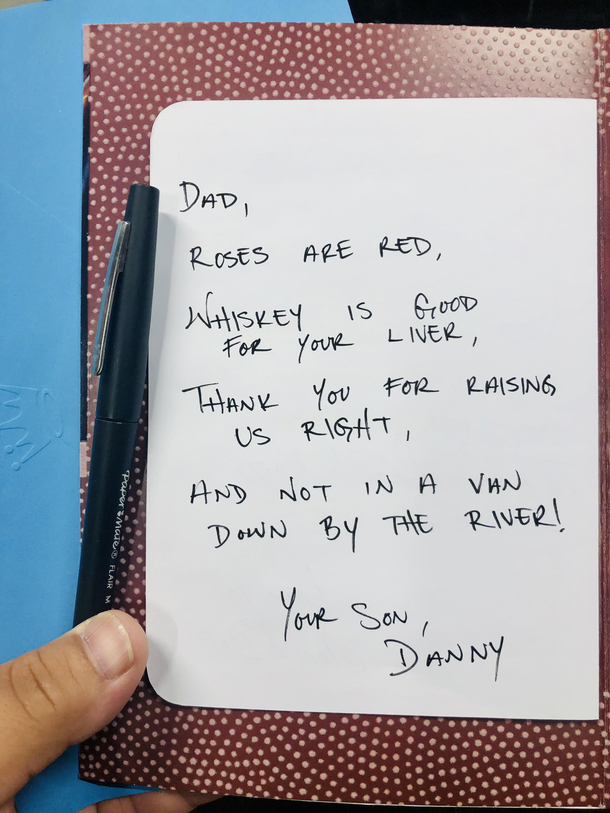 Dad,
Roses are red,
Whiskey is good
for your liver,
Thank you for raising
us right,
and not in a van
down by the river!
Your Son,
Danny
Paper:Mate® FLAIR M